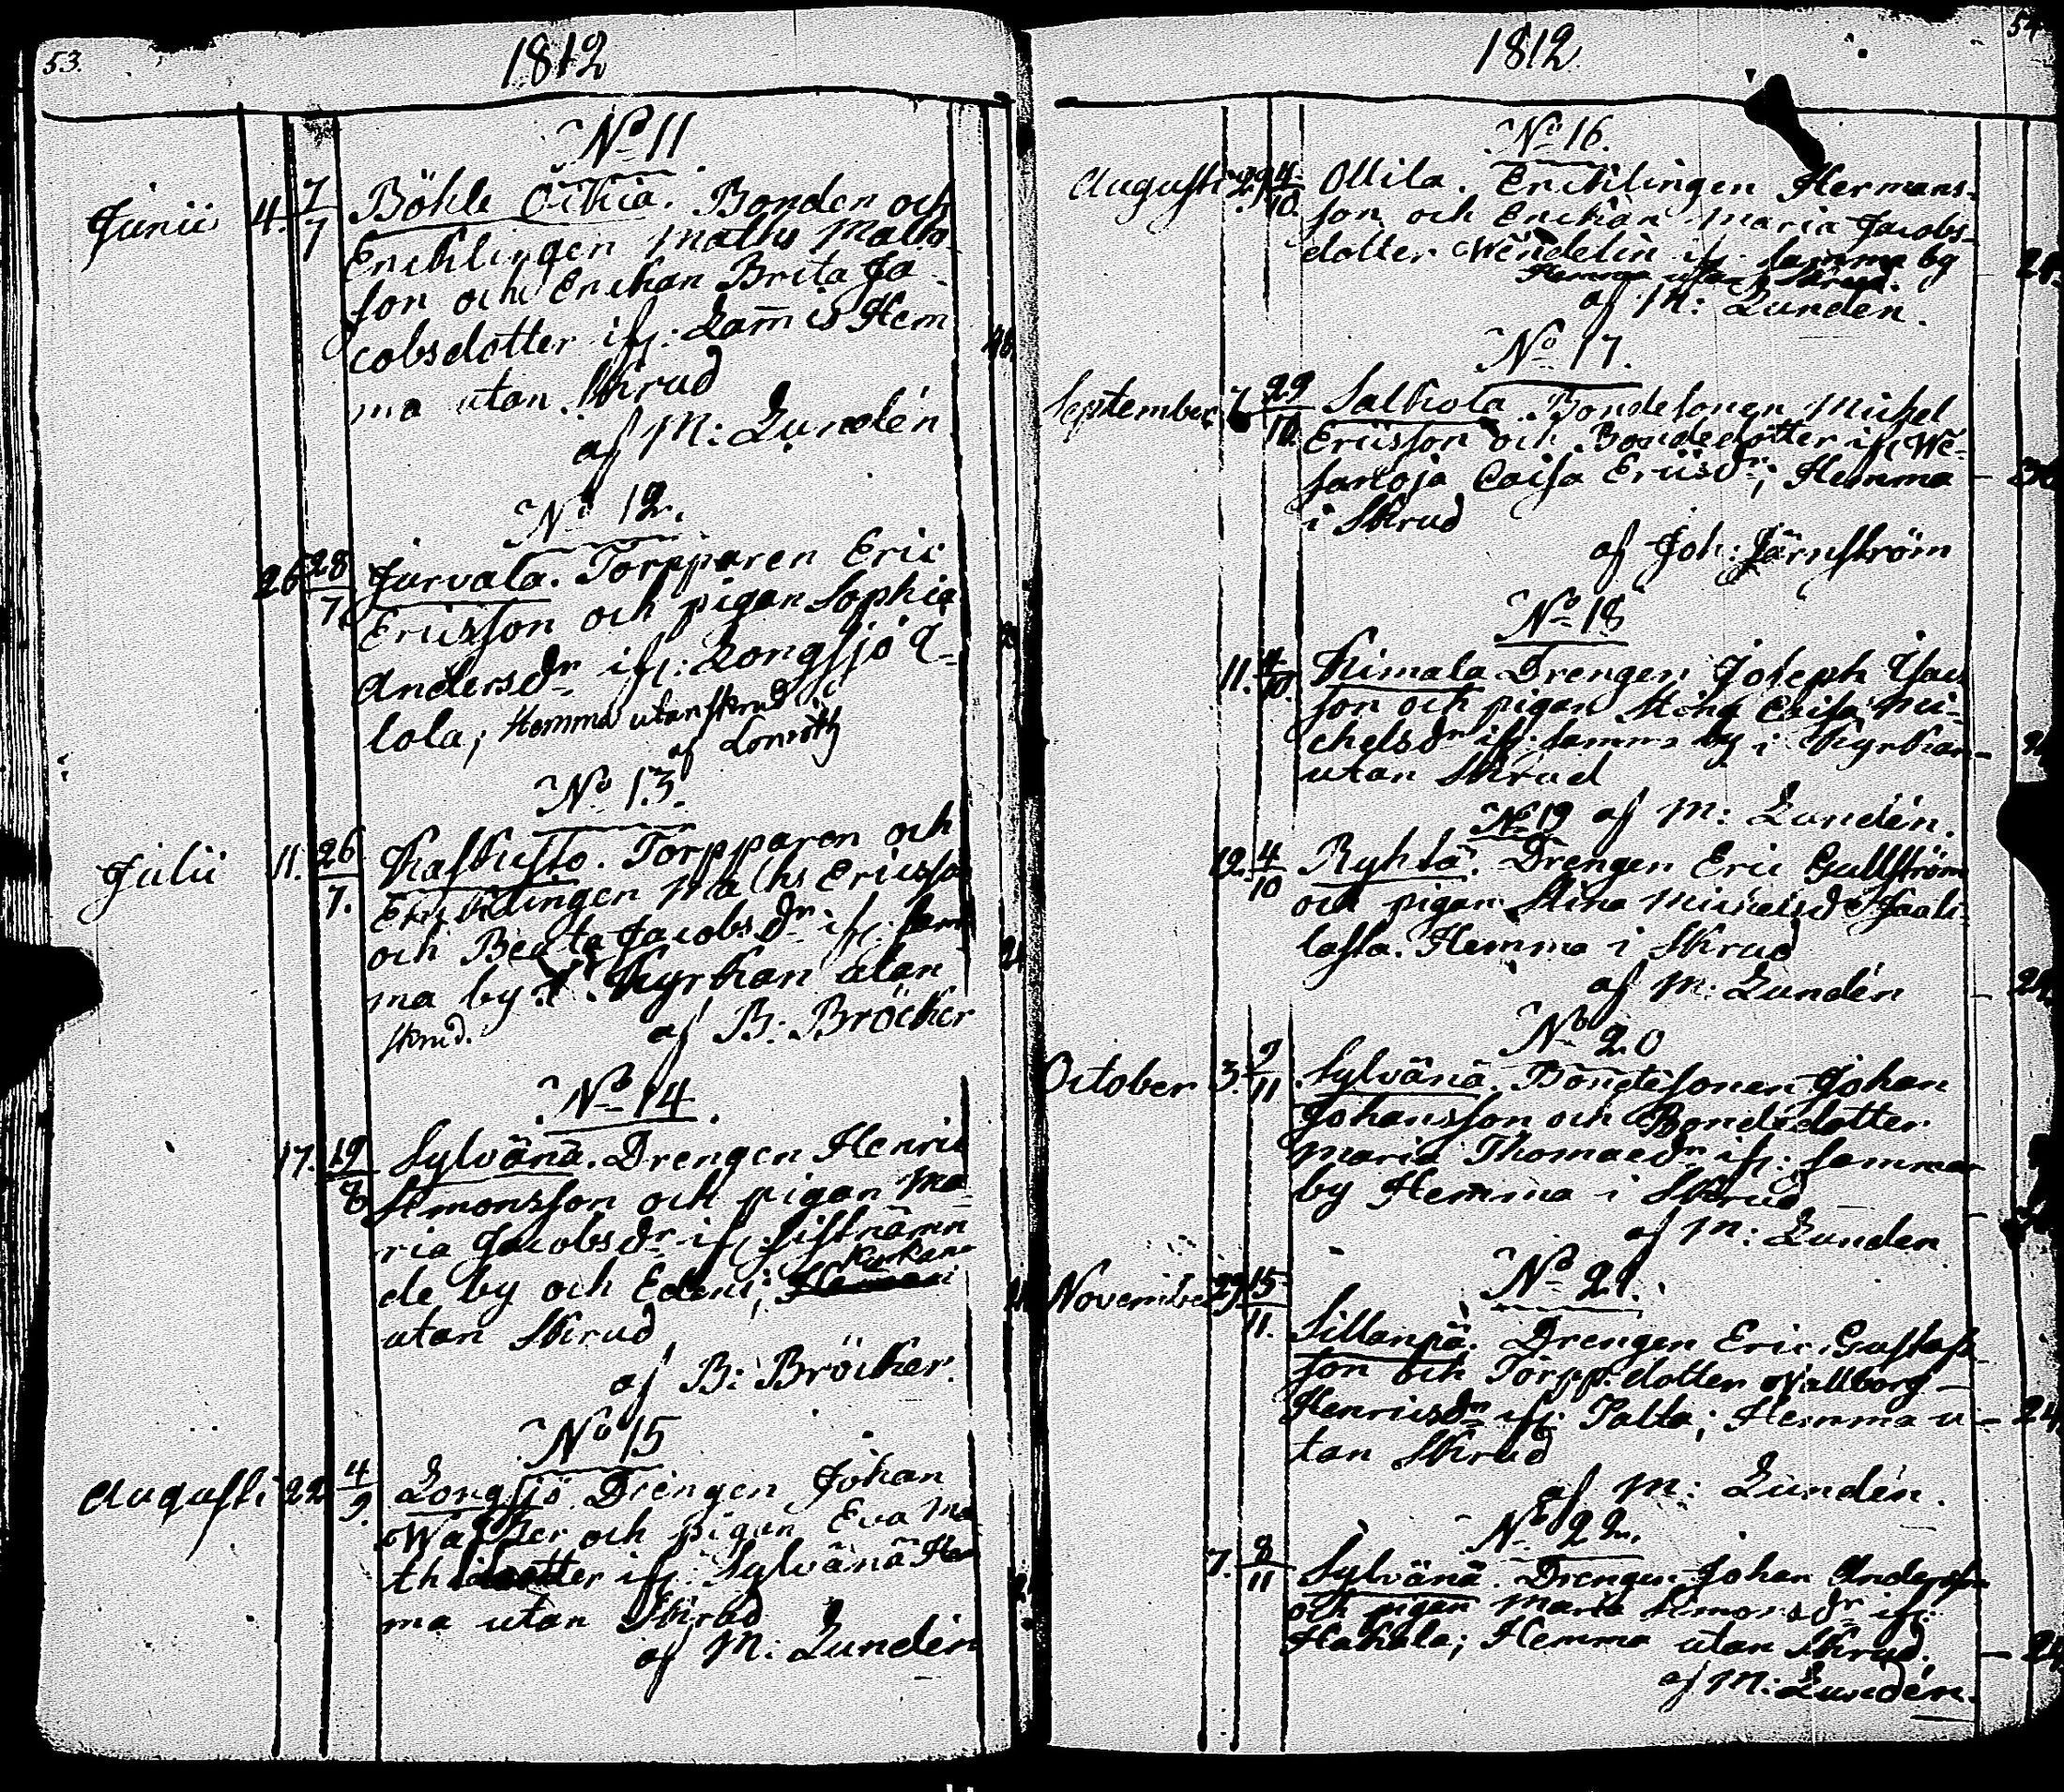 53.
1812
No 11
Junii 4. 7/7 Böhle Oikia. Bonden och
Enklingen Maths Maths-
son och Enkan Brita Ja-
cobsdotter ifr: Lammis Hem
ma utan Skrud
af M: Lundén
No 12.
26 28/7. Jurvala. Torpparen Eric
Ericsson och pigan Sophia
Andersdr ifr: Longsjö
lola; Hemma utan skrud
af Lonroth
No 13.
Julii 11. 26/7. Torpparen och
Enklingen Maths Ericsson
och Beata Jacobsdr ifr: sam
ma by i Kyrkan utan
skrud.
af B: Bröcker
No 14.
17. 19/8 Sylvänä. Drengen Henric
Simonsson och pigan Ma
ria Jacobsdr ifr: sistnämn
de by och Edeni; Kyrkan
utan Skrud
af B: Bröcker.
No 15
Augusti 22 4/9. Longsjö Drengen Johan
och pigan Eva Ma
ifr: Sylvänä Hem
ma utan Skrud
af M: Lundén
54
1812
No 16.
Augusti 29 4/10. Ollila. Enklingen Hermans-
son och Enkan Maria Jacobs-
dotter Wendelin ifr: samma by
Hemma utan Skrud.
af M: Lundén.
No 17.
September 29/10. Salkola Bondesonen Michel
Ericsson och Bondedotter ifr We-
sarkoja Caisa Ericsdr; Hemma
i Skrud
af Joh: Järnström
No 18
11. 4/10. Kimala Drengen Joseph Isacs
son och pigan Stina Caisa Mi-
chelsdr ifr: samma by i Kyrkan
utan Skrud
No 19 af M: Lundén.
12. 4/10 Ryhtä. Drengen Eric Gullström
och pigan Stina Michelsd
Hemma i Skrud
af M: Lundén
24.
No 20
October 3. 9/11 Sylvänä. Bondesonen Johan
Johansson och Bondedotter
Maria Thomaedr ifr: samma
by Hemma i Skrud
af M: Lunden
No 21.
November 15/11. Sillanpä. Drengen Eric Gustafs-
son och Torppdotter Wallborg
Henricsdr ifr: Talta; Hemma u- 24
tan Skrud
af M: Lundén.
No 22.
7. 8/11 Sylvänä. Drengen Johan Andersson
och pigan Maria Simonsdr ifr:
Hakala; Hemma utan Skrud. 24
af M: Lundén.